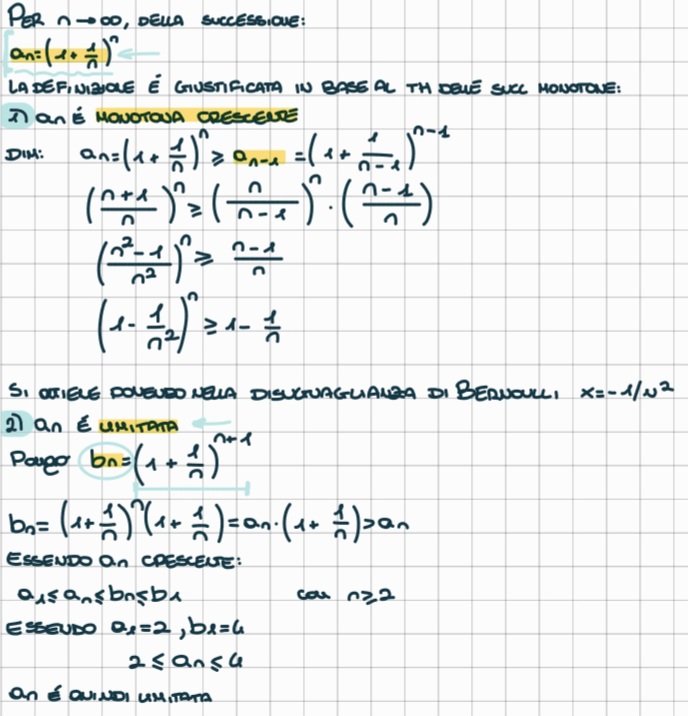 PER n→∞, DELLA SUCCESSIONE:
an=(1+1/n)^n ←
LA DEFINIZIONE É GIUSTIFICATA IN BASE AL TH DELLE SUCC MONOTONE:
1) an É MONOTONA CRESCENTE
DIM: an=(1+1/n)^n ≥ a_{n-1} =(1+1/(n-1))^{n-1}
((n+1)/n)^n ≥ (n/(n-1))^n · ((n-1)/n)
((n²-1)/n²)^n ≥ (n-1)/n
(1-1/n²)^n ≥ 1-1/n
SI OTTIENE PONENDO NELLA DISUGUAGLIANZA DI BERNOULLI X=-1/N²
2) an É LIMITATA ←
Pongo bn=(1+1/n)^{n+1}
bn=(1+1/n)^n(1+1/n)=an·(1+1/n)>an
ESSENDO an CRESCENTE:
a1≤an≤bn≤b1 con n≥2
ESSENDO a1=2, b1=4
2≤an≤4
an É QUINDI LIMITATA